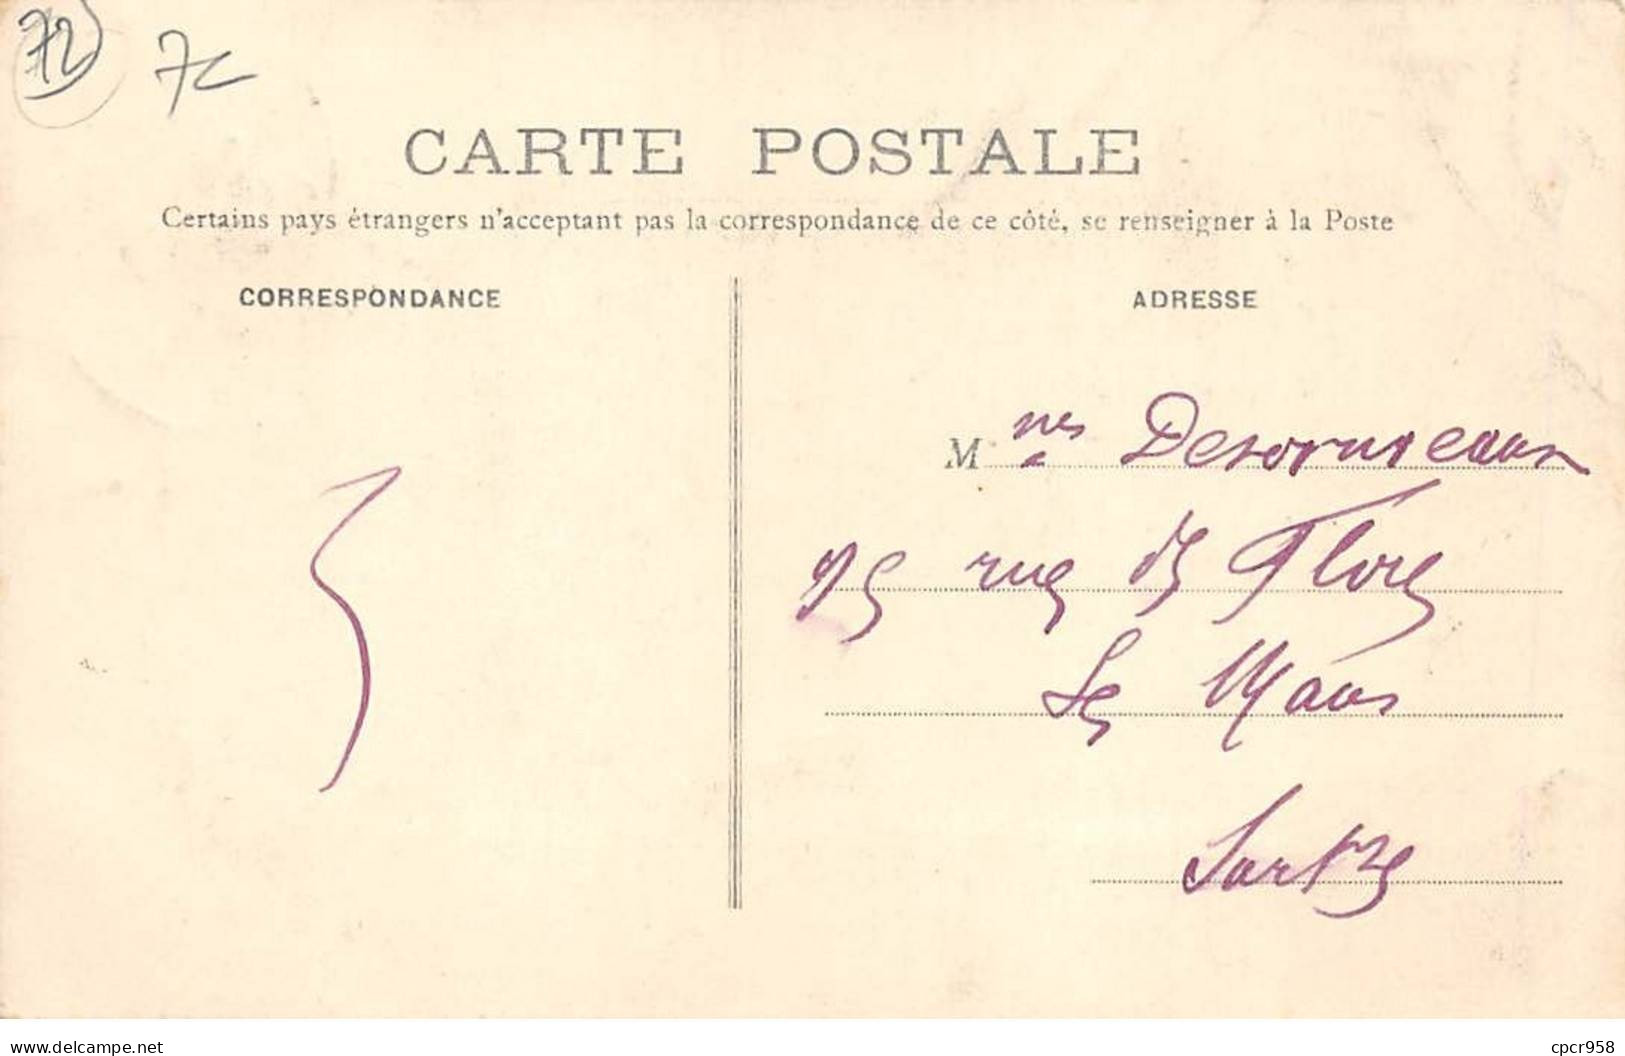 72 7c
CARTE POSTALE
Certains pays étrangers n'acceptant pas la correspondance de ce côté, se renseigner à la Poste
CORRESPONDANCE
ADRESSE
Mmes Desormeaux
rue de Flore
Le Mans
Sarthe
www.delcampe.net
cpcr958